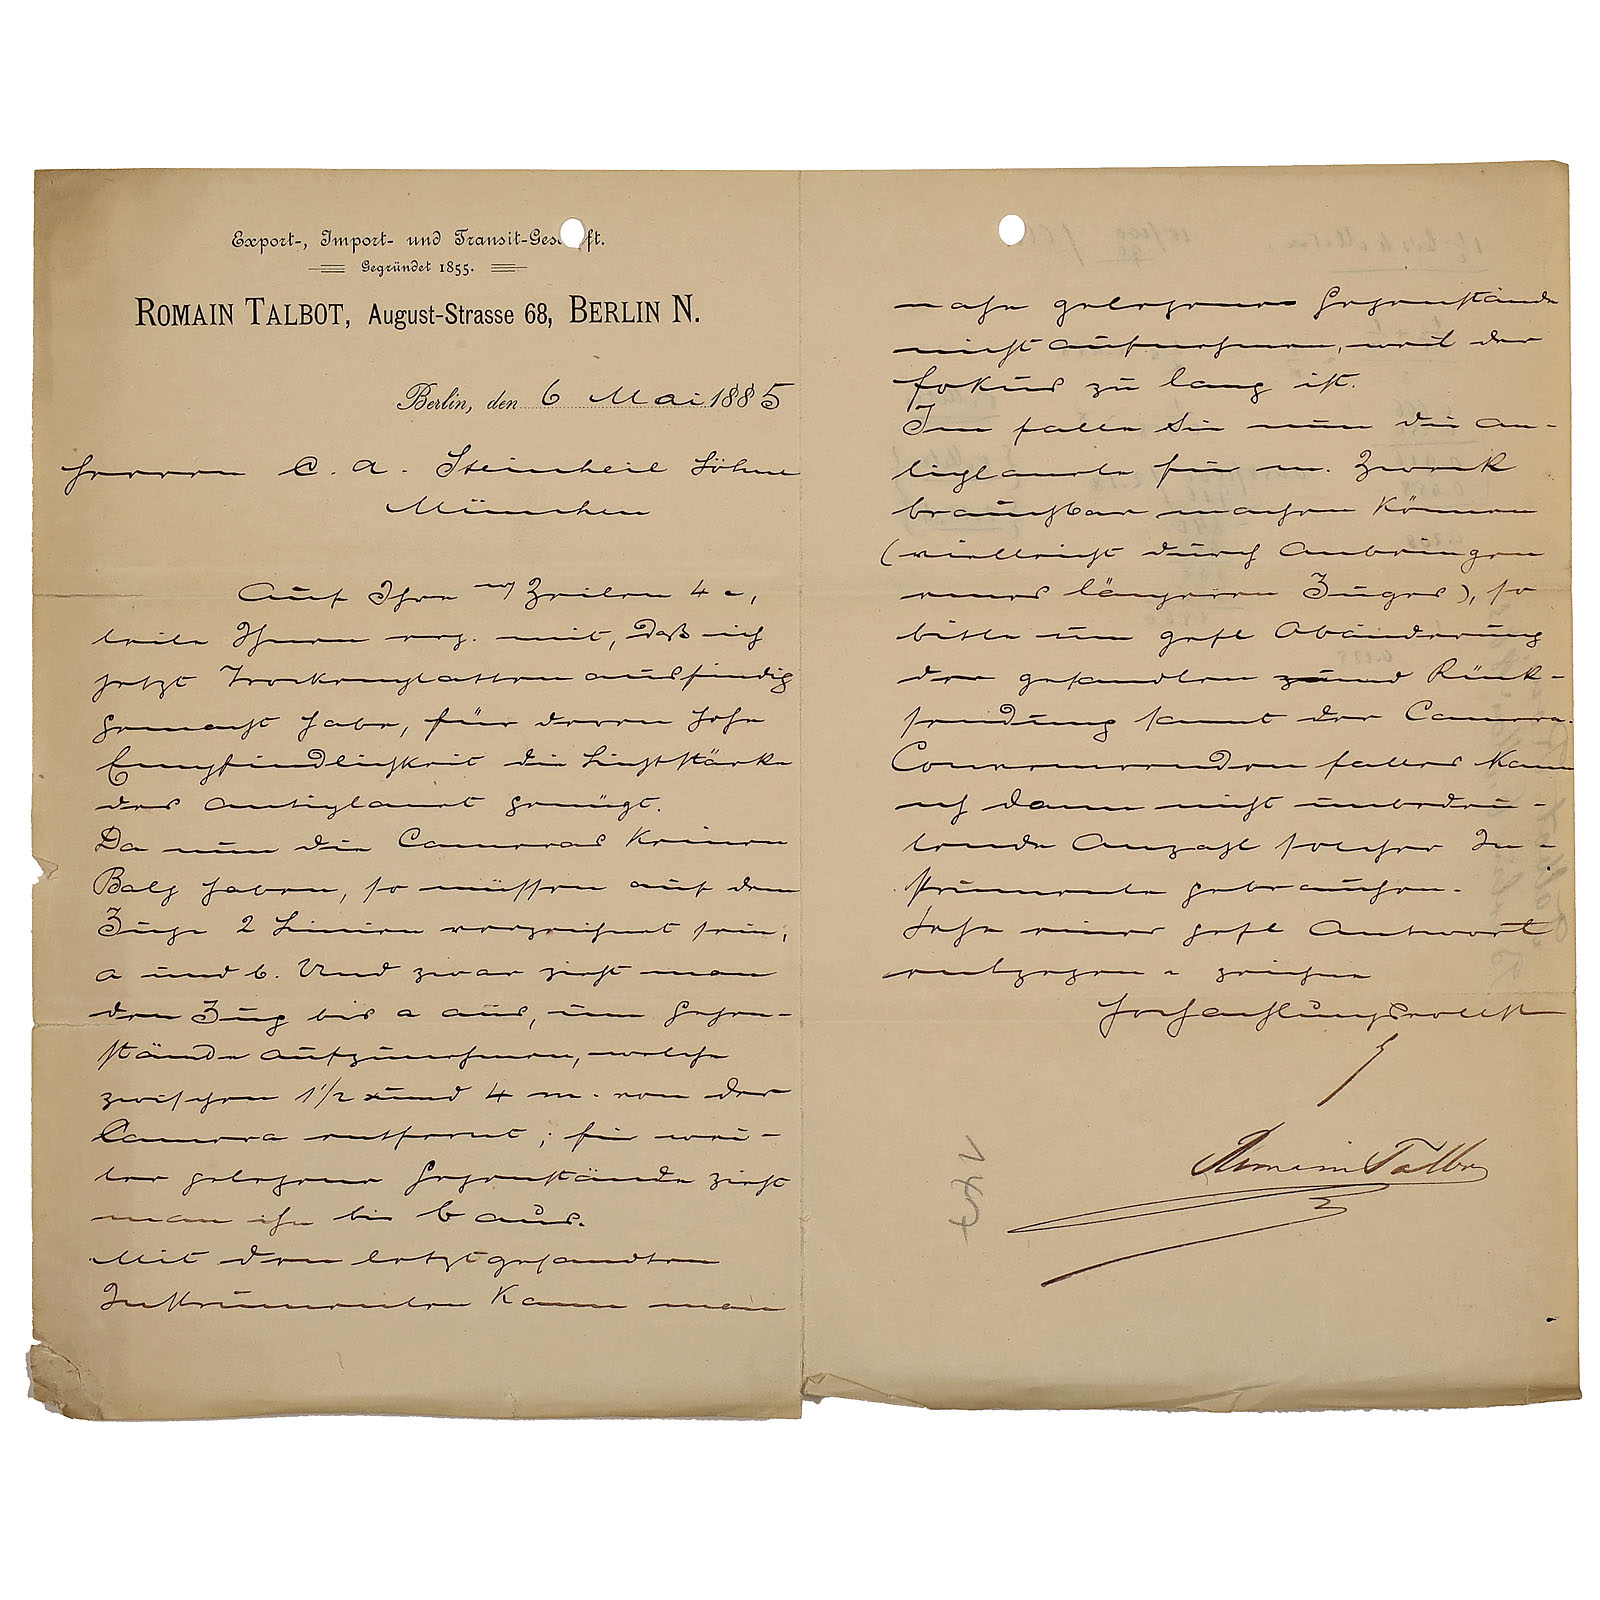 Export-, Import- und Transit-Geschäft.
Gegründet 1855.
ROMAIN TALBOT, August-Strasse 68, BERLIN N.
Berlin, den 6 Mai 1885
Herren C. A. Steinheil Söhne
München
Auf Ihre Zeilen 4 c,
teile Ihnen erg. mit, daß ich
jetzt Trockenplatten ausfindig
gemacht habe, für deren hohe
Empfindlichkeit die Lichtstärke
des Antiplanet genügt.
Da nun die Cameras keinen
Balg haben, so müssen auf dem
Zuge 2 Linien verzeichnet sein,
a und b. Und zwar zieht man
den Zug bis a aus, um Gegen-
stände aufzunehmen, welche
zwischen 1 1/2 und 4 m. von der
Camera entfernt; für wei-
ter gelegene Gegenstände zieht
man ihn bis b aus.
Mit den letztgesandten
Instrumenten kann man
nahe gelegene Gegenstände
nicht aufnehmen, weil der
Fokus zu lang ist.
Im falle Sie nun die An-
tiplanete für m. Zweck
brauchbar machen können
(vielleicht durch Anbringen
eines längeren Zuges), so
bitte um gefl Abänderung
der gesandten und Rück-
sendung samt der Camera.
Convenierenden falles kann
ich dann nicht unbedeu-
tende Anzahl solcher In-
strumente gebrauchen.
Sehe einer gefl Antwort
entgegen & zeichne
Hochachtungsvollst
Romain Talbot